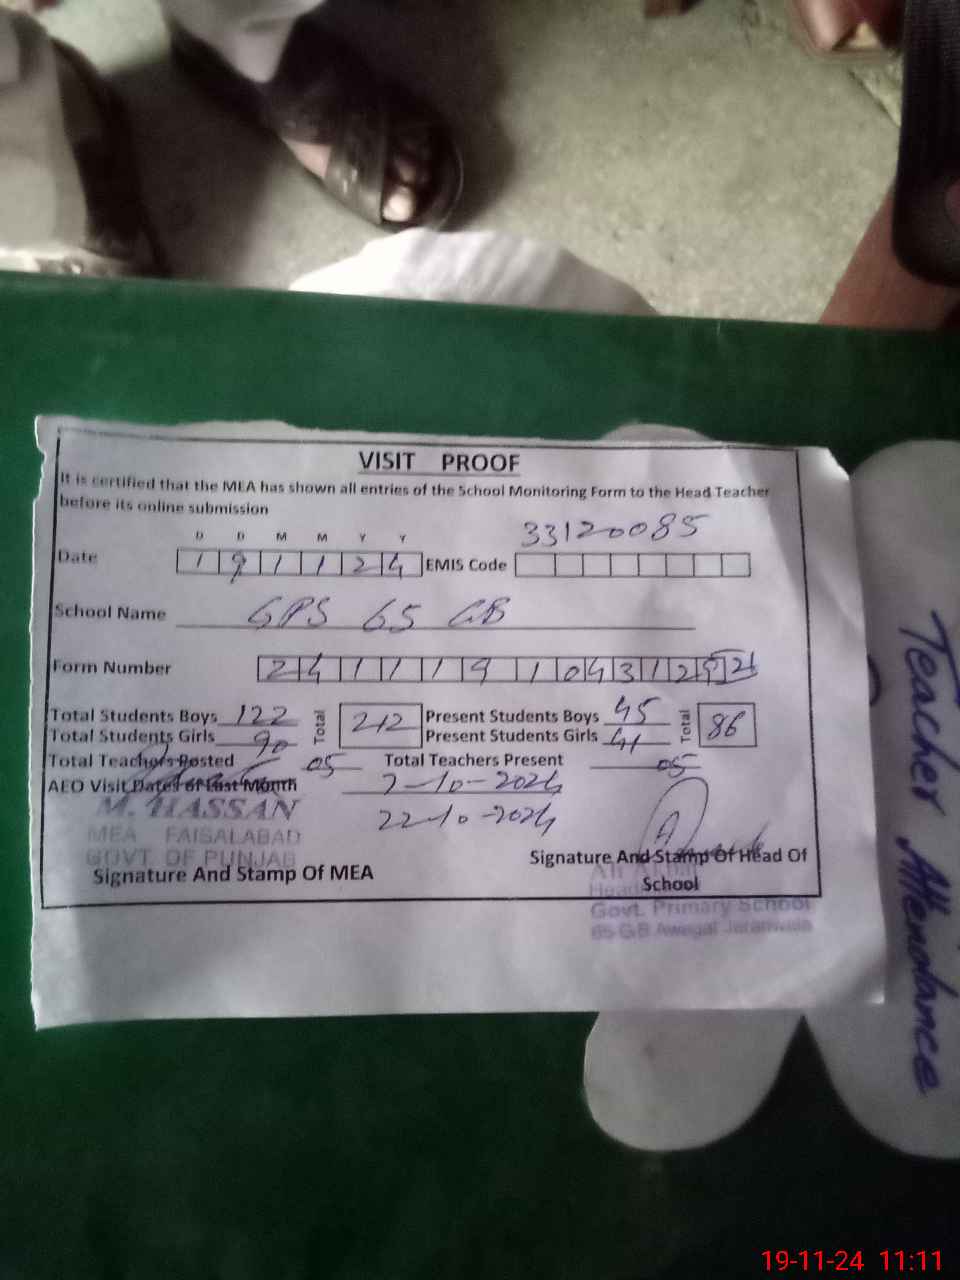 VISIT PROOF
It is certified that the MEA has shown all entries of the School Monitoring Form to the Head Teacher
before its online submission
D D M M Y Y
33120085
Date 1 9 1 1 2 4 EMIS Code
School Name GPS 65 GB
Form Number 2 4 1 1 1 9 1 0 4 3 1 2
Total Students Boys 122 Total 212 Present Students Boys 45 Total 86
Total Students Girls 90 Present Students Girls 41
Total Teachers Posted 05 Total Teachers Present 05
AEO Visit Dates of Last Month 7-10-2024
22-10-2024
M. HASSAN
MEA FAISALABAD
GOVT. OF PUNJAB
Signature And Stamp Of MEA
Signature And Stamp Of Head Of
School
Govt. Primary School
65 G.B Jaranwala
Teacher Attendance
19-11-24 11:11